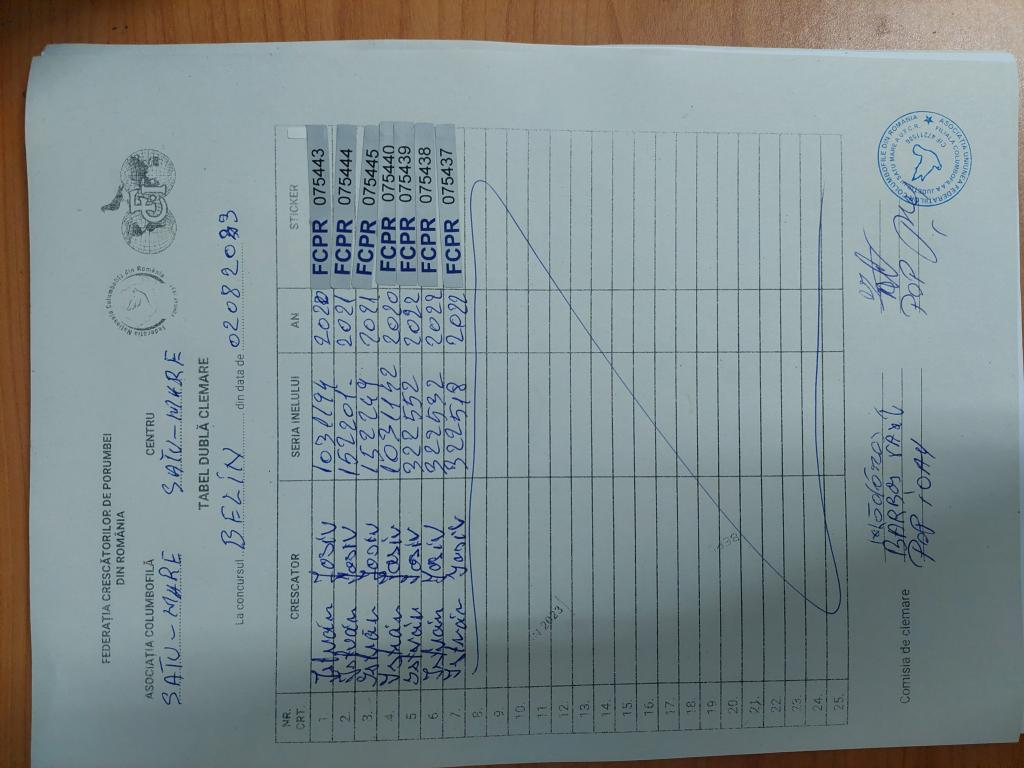 FEDERAȚIA CRESCĂTORILOR DE PORUMBEI
DIN ROMÂNIA
ASOCIAȚIA COLUMBOFILĂ CENTRU
SATU-MARE SATU-MARE
TABEL DUBLĂ CLEMARE
La concursul BELIN din data de 02082023
NR. CRT. CRESCATOR SERIA INELULUI AN STICKER
1. István Iosiv 1031194 2020 FCPR 075443
2. István Iosiv 152201. 2021 FCPR 075444
3. István Iosiv 152249 2021 FCPR 075445
4. István Iosiv 1031142 2020 FCPR 075440
5 István Iosiv 322552 2022 FCPR 075439
6. István Iosiv 322532 2022 FCPR 075438
7. István Iosiv 322518 2022 FCPR 075437
8.
9.
10.
11.
12.
13.
14.
15.
16.
17.
18.
19.
20.
21.
22.
23.
24.
25.
Comisia de clemare
BARBOS
POP IOAN POP